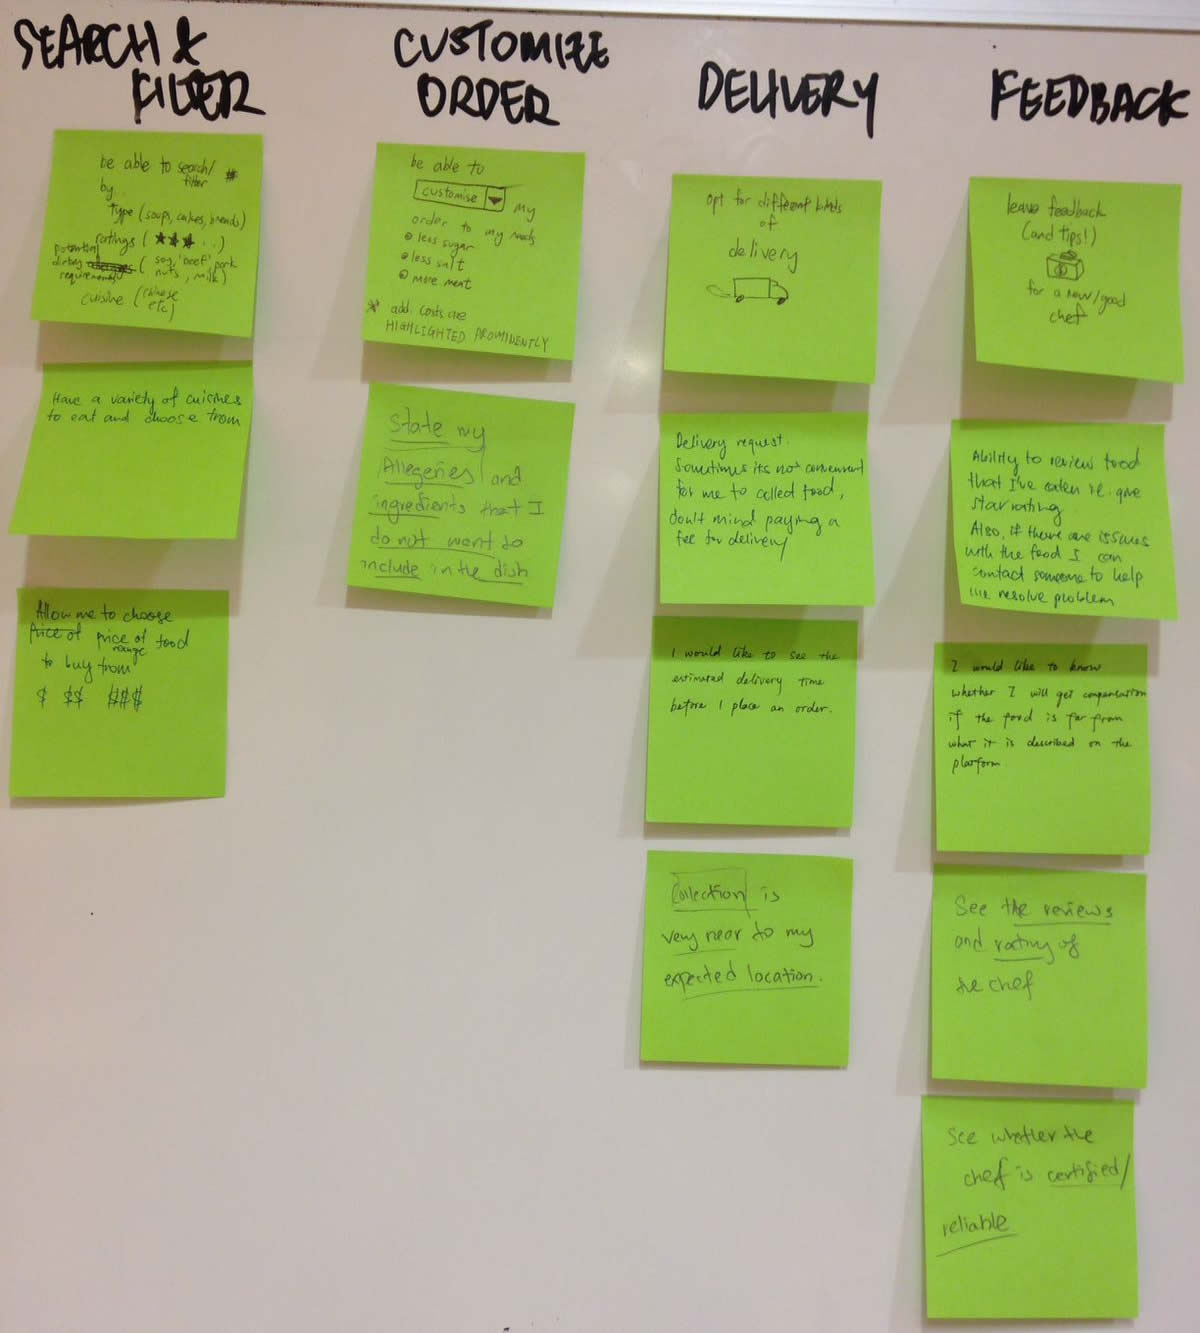 SEARCH &
FILTER
be able to search/
filter
by..
type (soups, cakes, breads)
ratings (★★★...)
potential
dietary
requirements
(soy, 'beef' pork
nuts, milk)
cuisine (chinese
etc)
Have a variety of cuisines
to eat and choose from
Allow me to choose
price of price of food
range
to buy from
$ $$ $$$
CUSTOMIZE
ORDER
be able to
customise ▼ my
order to my needs
less sugar
less salt
more meat
* add. costs are
HIGHLIGHTED PROMINENTLY
State my
Allegeries and
ingredients that I
do not want to
include in the dish
DELIVERY
opt for different kinds
of
delivery
Delivery request.
Sometimes its not convenient
for me to collect food,
don't mind paying a
fee for delivery
I would like to see the
estimated delivery time
before I place an order.
Collection is
very near to my
expected location.
FEEDBACK
leave feedback
(and tips!)
$
for a new/good
chef
Ability to review food
that I've eaten ie. give
star rating.
Also, if there are issues
with the food I can
contact someone to help
me resolve problem
I would like to know
whether I will get compensation
if the food is far from
what it is described on the
platform
See the reviews
and rating of
the chef
See whether the
chef is certified/
reliable